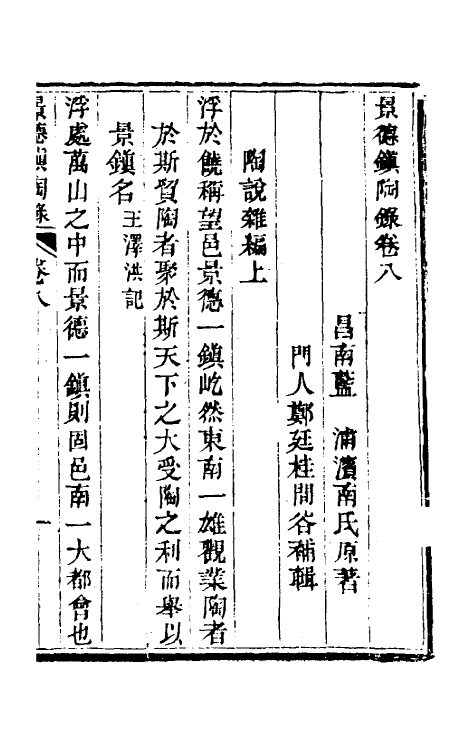 景德鎮陶錄卷八
昌南藍　浦濱南氏原著
門人鄭廷桂問谷補輯
陶說雜編上
浮於饒稱望邑景德一鎮屹然東南一雄觀業陶者
於斯貿陶者聚於斯天下之大受陶之利而舉以
景鎮名王澤洪記
浮處萬山之中而景德一鎮則固邑南一大都會也
景德鎮陶錄
卷八
一